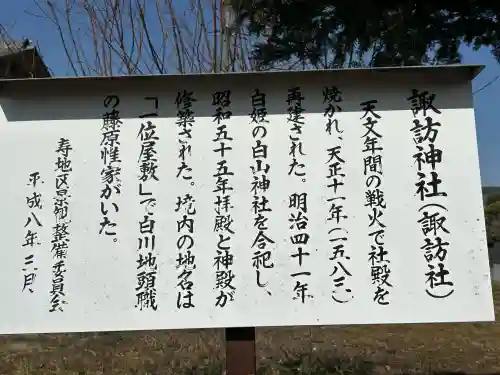 諏訪神社(諏訪社)
天文年間の戦火で社殿を
焼かれ、天正十一年(一五八三)
再建された。明治四十一年
白姫の白山神社を合祀し、
昭和五十五年拝殿と神殿が
修築された。境内の地名は
「一位屋敷」で白川地頭職
の藤原性家がいた。
寿地区景観整備委員会
平成八年三月